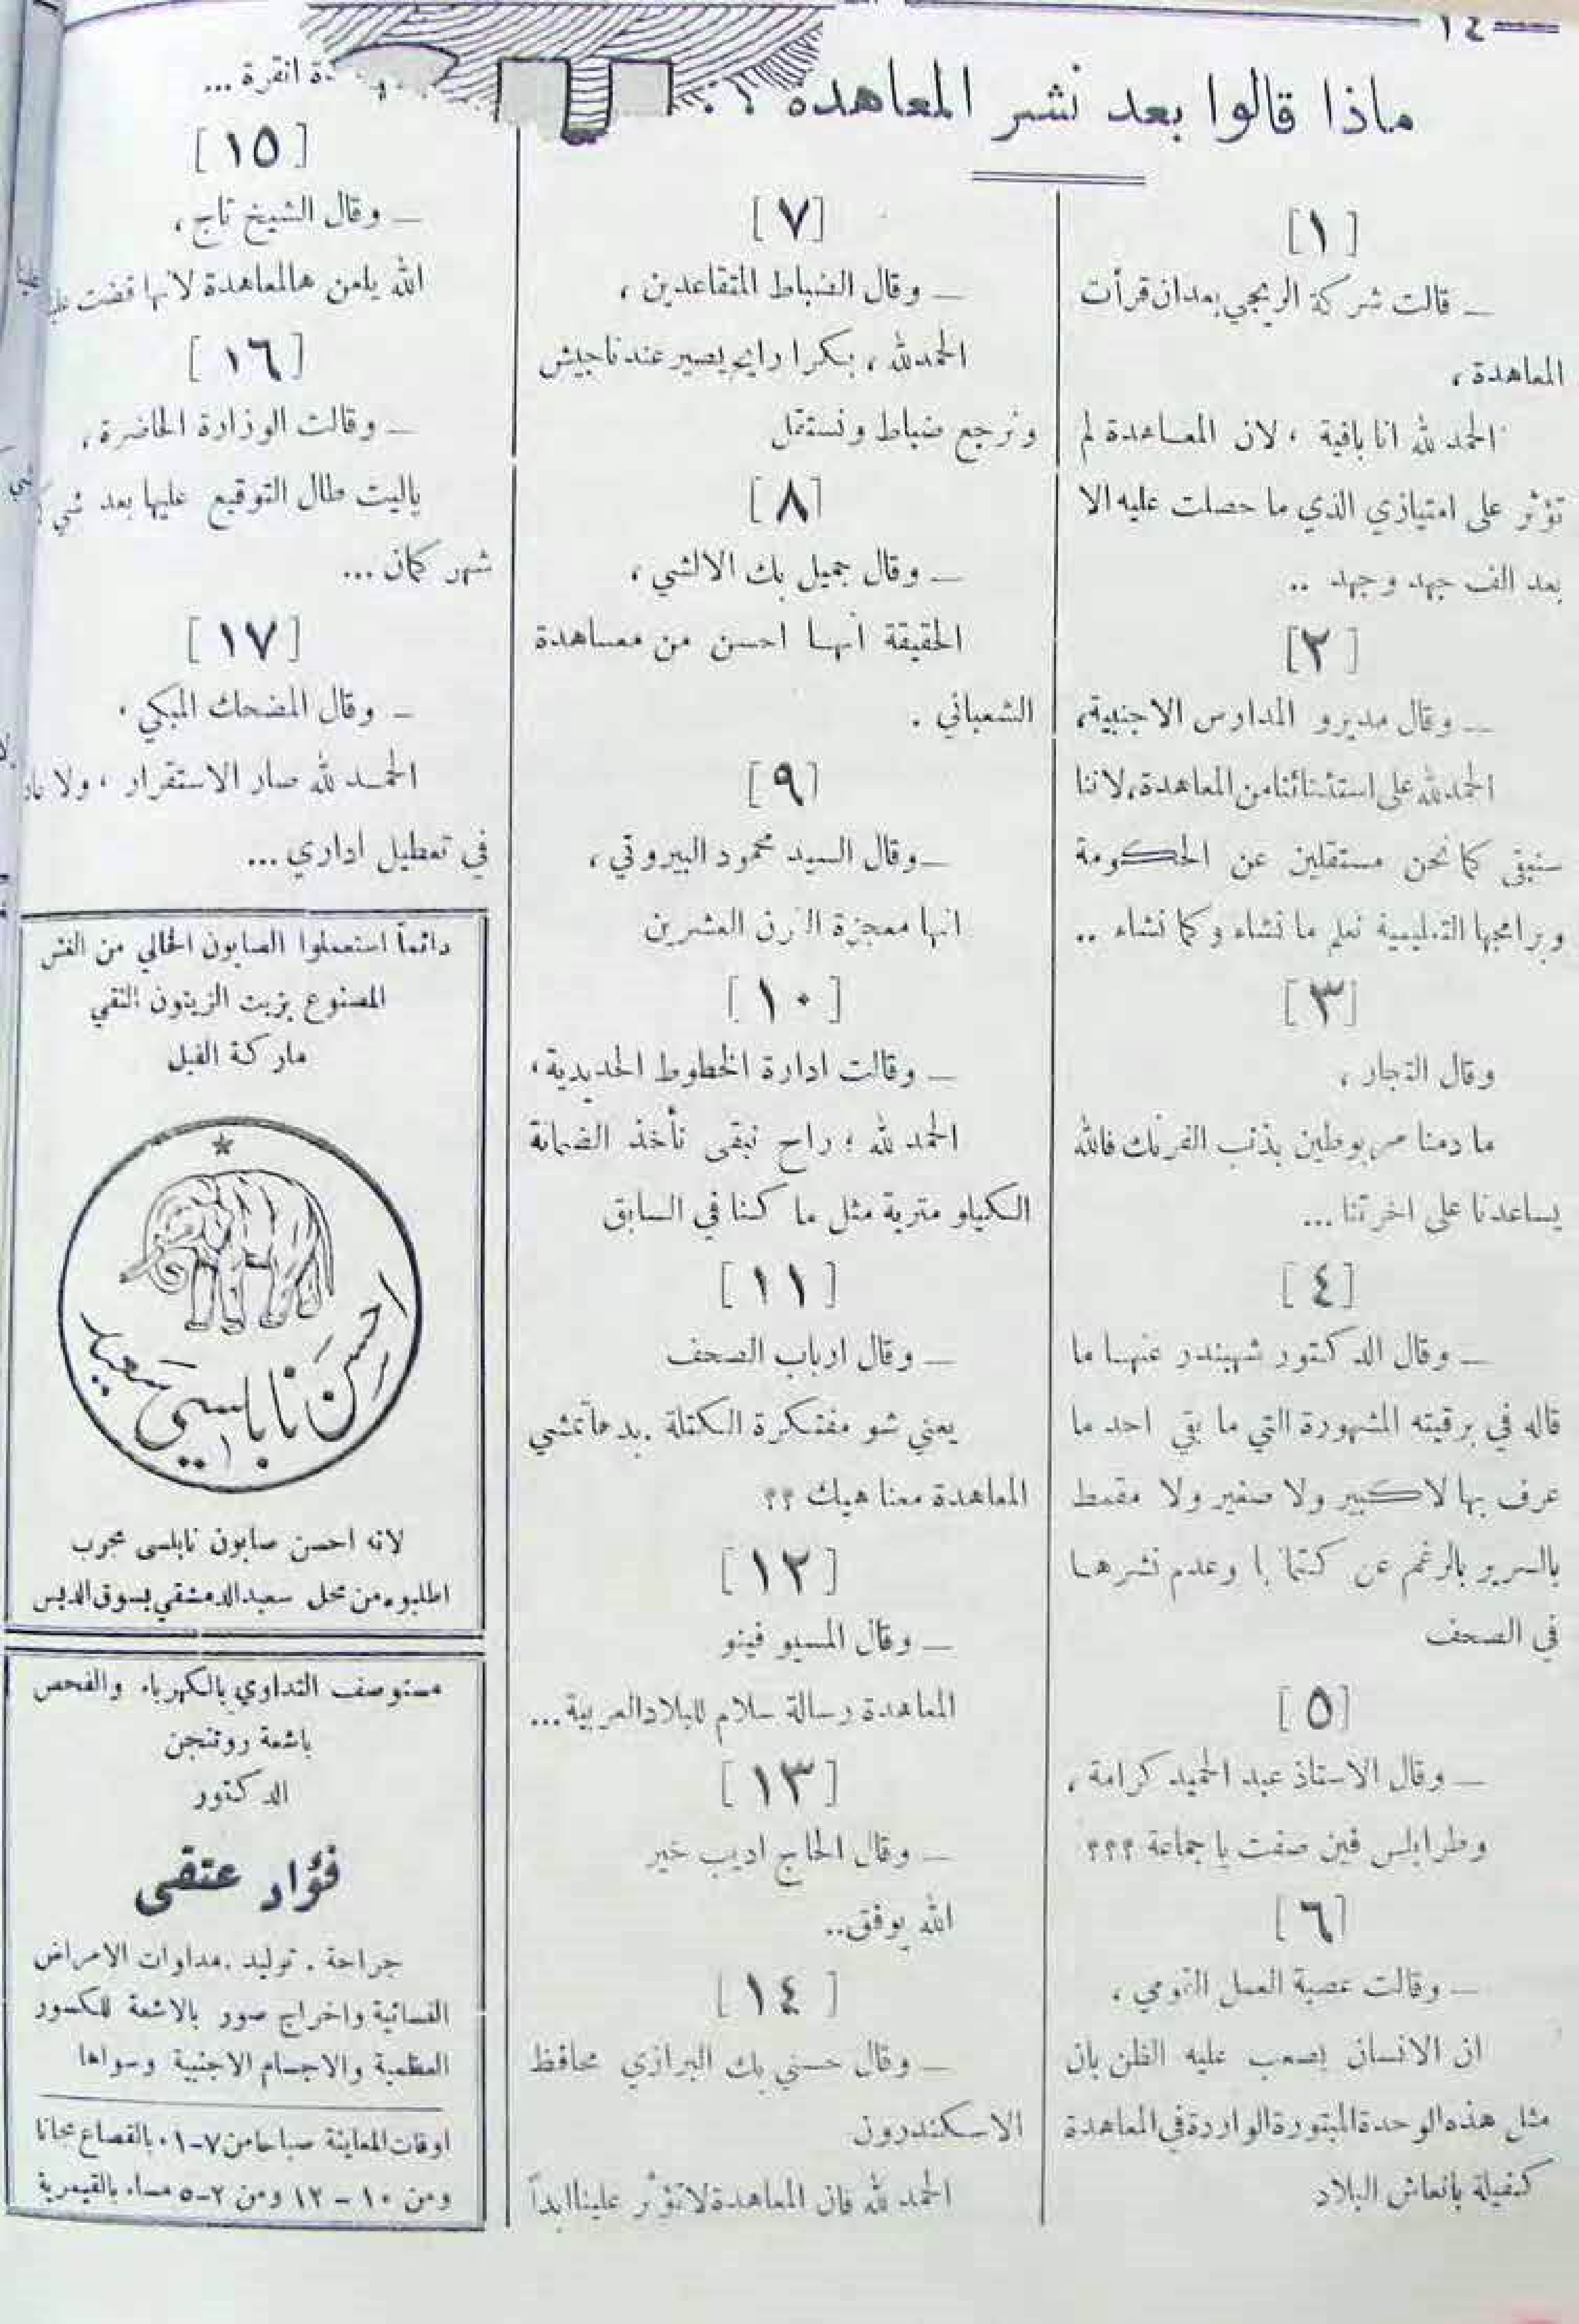 ١٤
ماذا قالوا بعد نشر المعاهدة ؟ .
[١]
ــ قالت شركة الريجي بعد ان قرأت
المعاهدة ،
الحمد لله انا باقية ، لان المعاهدة لم
تؤثر على امتيازي الذي ما حصلت عليه الا
بعد الف جهد وجهد ..
[٢]
ــ وقال مديرو المدارس الاجنبية،
الحمد لله على استثنائنا من المعاهدة، لاننا
سنبقى كما نحن مستقلين عن الحكومة
وبرامجها التعليمية نعلم ما نشاء وكما نشاء ..
[٣]
وقال التجار ،
ما دمنا مربوطين بذنب الفرنك فالله
يساعدنا على اخرتنا ...
[٤]
ــ وقال الدكتور شهبندر عنها ما
قاله في برقيته المشهورة التي ما بقي احد ما
عرف بها لا كبير ولا صغير ولا مقمط
بالسرير بالرغم عن كتمانها وعدم نشرها
في الصحف
[٥]
ــ وقال الاستاذ عبد الحميد كرامة ،
وطرابلس فين صفت يا جماعة ؟؟؟
[٦]
ــ وقالت عصبة العمل القومي ،
ان الانسان يصعب عليه الظن بان
مثل هذه الوحدة المبتورة الواردة في المعاهدة
كفيلة بانعاش البلاد
[٧]
ــ وقال الضباط المتقاعدين ،
الحمد لله ، بكرا رايح يصير عندنا جيش
ونرجع ضباط ونستقتل
[٨]
ــ وقال جميل بك الالشي ،
الحقيقة انها احسن من معاهدة
الشعباني .
[٩]
ــ وقال السيد محمود البيروتي ،
انها معجزة القرن العشرين
[١٠]
ــ وقالت ادارة الخطوط الحديدية ،
الحمد لله ؛ راح نبقى نأخذ الضمانة
الكيلو مترية مثل ما كنا في السابق
[١١]
ــ وقال ارباب الصحف
يعني شو مفتكرة الكتلة . بدها تمشي
المعاهدة معنا هيك ؟؟
[١٢]
ــ وقال المسيو فينو
المعاهدة رسالة سلام للبلاد العربية ...
[١٣]
ــ وقال الحاج اديب خير
الله يوفق ..
[١٤]
ــ وقال حسني بك البرازي محافظ
الاسكندرون
الحمد لله فان المعاهدة لا تؤثر علينا ابداً
انقرة ...
[١٥]
ــ وقال الشيخ تاج ،
الله يلعن هالمعاهدة لانها قضت
[١٦]
ــ وقالت الوزارة الحاضرة ،
ياليت طال التوقيع عليها بعد شي
شهر كمان ...
[١٧]
ــ وقال المضحك المبكي ،
الحمد لله صار الاستقرار ، ولا
في تعطيل اداري ...
دائماً استعملوا الصابون الخالي من الغش
المصنوع بزيت الزيتون النقي
ماركة الفيل
احسن نابلسي سعيد
لانه احسن صابون نابلسي مجرب
اطلبوه من محل سعيد الدمشقي بسوق الدبس
مستوصف التداوي بالكهرباء والفحص
باشعة رونتجن
الدكتور
فؤاد عتقي
جراحة . توليد . مداوات الامراض
النسائية واخراج صور بالاشعة للكسور
العظمية والاجسام الاجنبية وسواها
اوقات المعاينة صباحا من ٧-١٠ بالقصاع مجانا
ومن ١٠ - ١٢ ومن ٢-٥ مساء بالقيمرية